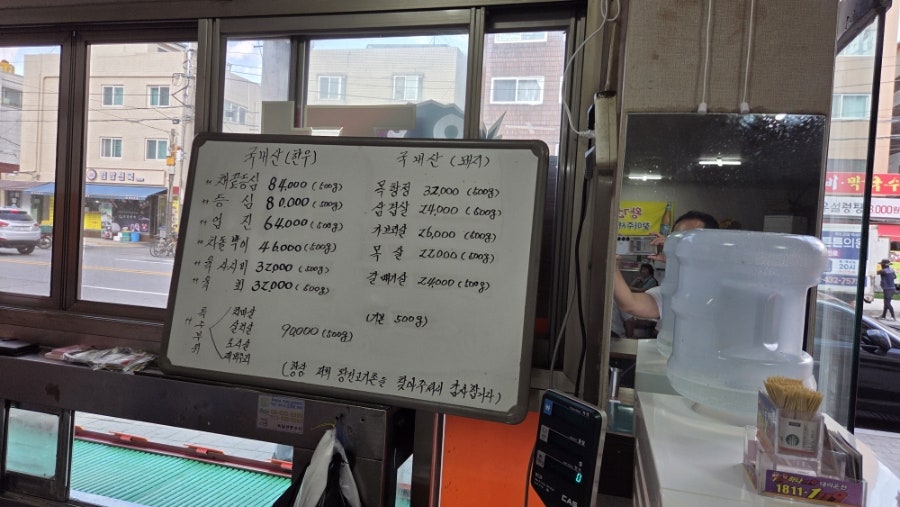 국내산 (한우)
" 채끝등심 84,000 (500g)
" 등 심 80,000 (500g)
" 업 진 64,000 (500g)
" 차돌박이 46,000 (500g)
" 육 사시미 32,000 (500g)
" 육 회 32,000 (500g)
" 특수부위
치마살
살치살
토시살
90,000 (500g)
국내산 (돼지)
목항정 32,000 (500g)
삼겹살 24,000 (500g)
가브리살 26,000 (500g)
목 살 22,000 (500g)
갈매기살 24,000 (500g)
(기본 500g)
을 찾아주셔서 감사합니다)
막국수
설렁탕
1811-1
0